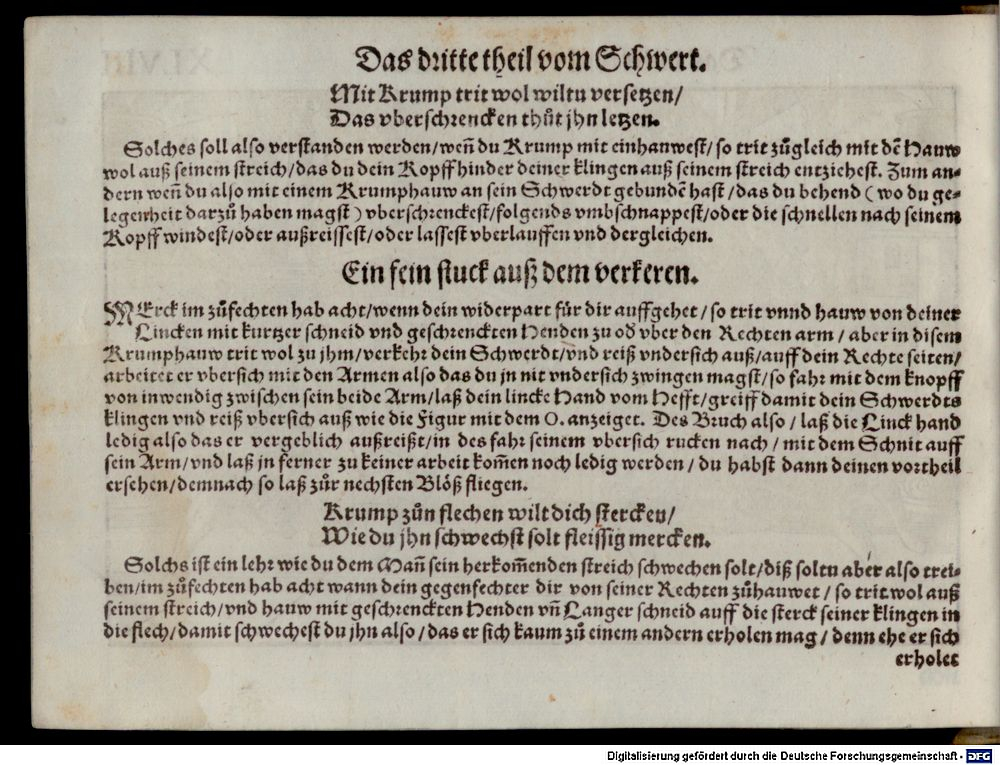 Das dritte theil vom Schwert.
Mit Krump trit wol wiltu versetzen/
Das vberschrencken thůt jhn letzen.
Solches soll also verstanden werden/wen̄ du Krump mit einhauwest/ so trit zůgleich mit dē Hauw
wol auß seinem streich/das du dein Kopff hinder deiner klingen auß seinem streich entziehest. Zum an-
dern wen̄ du also mit einem Krumphauw an sein Schwerdt gebundē hast/das du behend ( wo du ge-
legenheit darzů haben magst ) vberschrenckest/folgends vmbschnappest/oder die schnellen nach seinem
Kopff windest/oder außreissest/oder lassest vberlauffen vnd dergleichen.
Ein fein stuck auß dem verkeren.
MErck im zůfechten hab acht/wenn dein widerpart für dir auffgehet/ so trit vnnd hauw von deiner
Lincken mit kurtzer schneid vnd geschrenckten Henden zu od vber den Rechten arm/ aber in disem
Krumphauw trit wol zu jhm/verkehr dein Schwerdt/vnd reiß vndersich auß/auff dein Rechte seiten/
arbeitet er vbersich mit den Armen also das du jn nit vndersich zwingen magst/so fahr mit dem knopff
von inwendig zwischen sein beide Arm/laß dein lincke Hand vom Hefft/greiff damit dein Schwerdts
klingen vnd reiß vbersich auß wie die Figur mit dem O. anzeiget. Des Bruch also/ laß die Linck hand
ledig also das er vergeblich außreißt/in des fahr seinem vbersich rucken nach/ mit dem Schnit auff
sein Arm/vnd laß jn ferner zu keiner arbeit kom̄en noch ledig werden/ du habst dann deinen vortheil
ersehen/demnach so laß zůr nechsten Blöß fliegen.
Krump zůn flechen wilt dich stercken/
Wie du jhn schwechst solt fleissig mercken.
Solchs ist ein lehr wie du dem Man̄ sein herkom̄enden streich schwechen solt/diß soltu aber also trei-
ben/im zůfechten hab acht wann dein gegenfechter dir von seiner Rechten zůhauwet/ so trit wol auß
seinem streich/vnd hauw mit geschrenckten Henden vn̄ Langer schneid auff die sterck seiner klingen in
die flech/damit schwechest du jhn also/das er sich kaum zů einem andern erholen mag/ denn ehe er sich
erholet
Digitalisierung gefördert durch die Deutsche Forschungsgemeinschaft - DFG